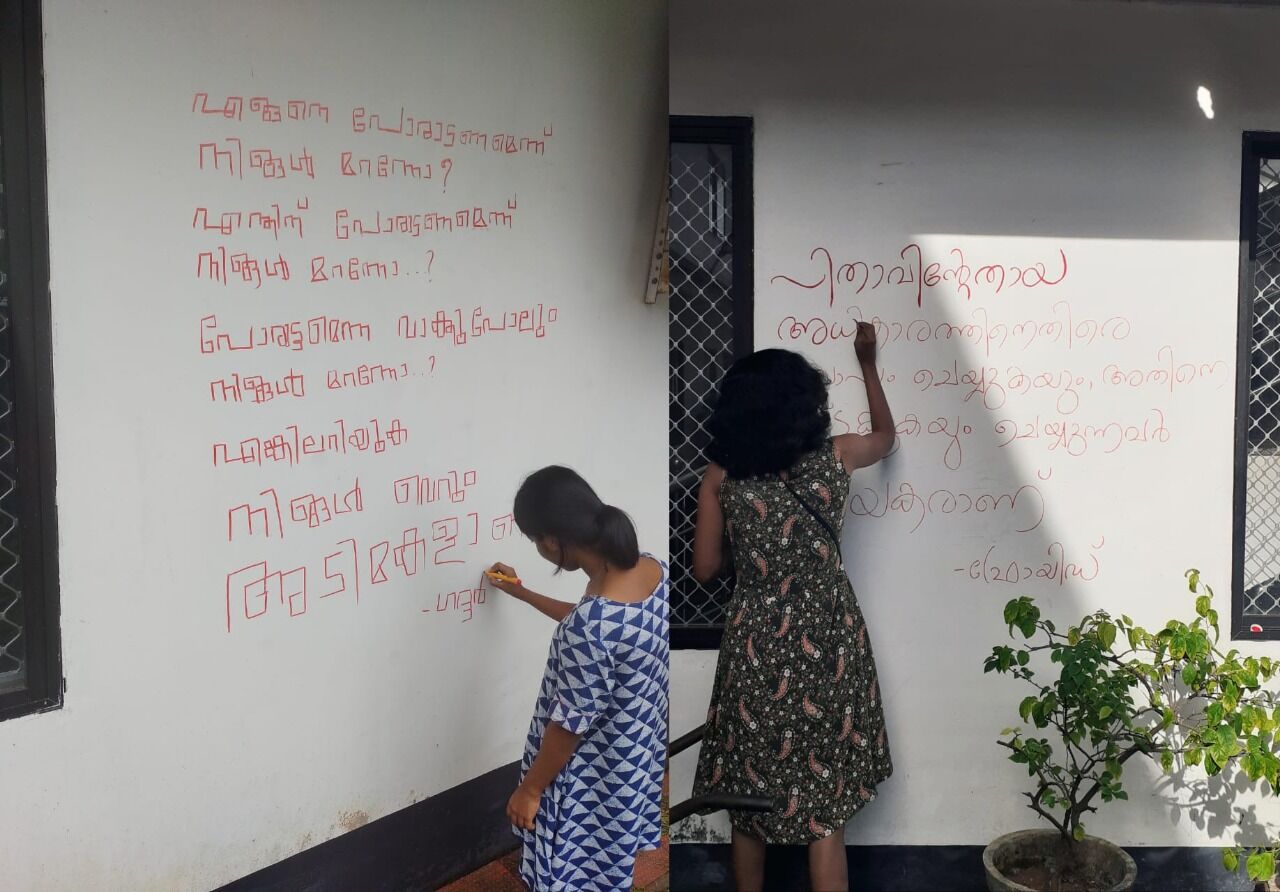 എങ്ങനെ പോരാട്ടണമെന്ന്
നിങ്ങൾ മറന്നോ?
എന്തിന് പോരാട്ടണമെന്ന്
നിങ്ങൾ മറന്നോ..?
പോരാട്ടമെന്ന വാക്കുപോലും
നിങ്ങൾ മറന്നോ..?
എങ്കിലറിയുക
നിങ്ങൾ വെറും
അടിമകളാണ്
-ഗദ്ദർ
പിതാവിന്റേതായ
അധികാരത്തിനെതിരെ
ചെയ്യുകയും, അതിനെ
ചെയ്യുന്നവർ
-ഫ്രോയിഡ്